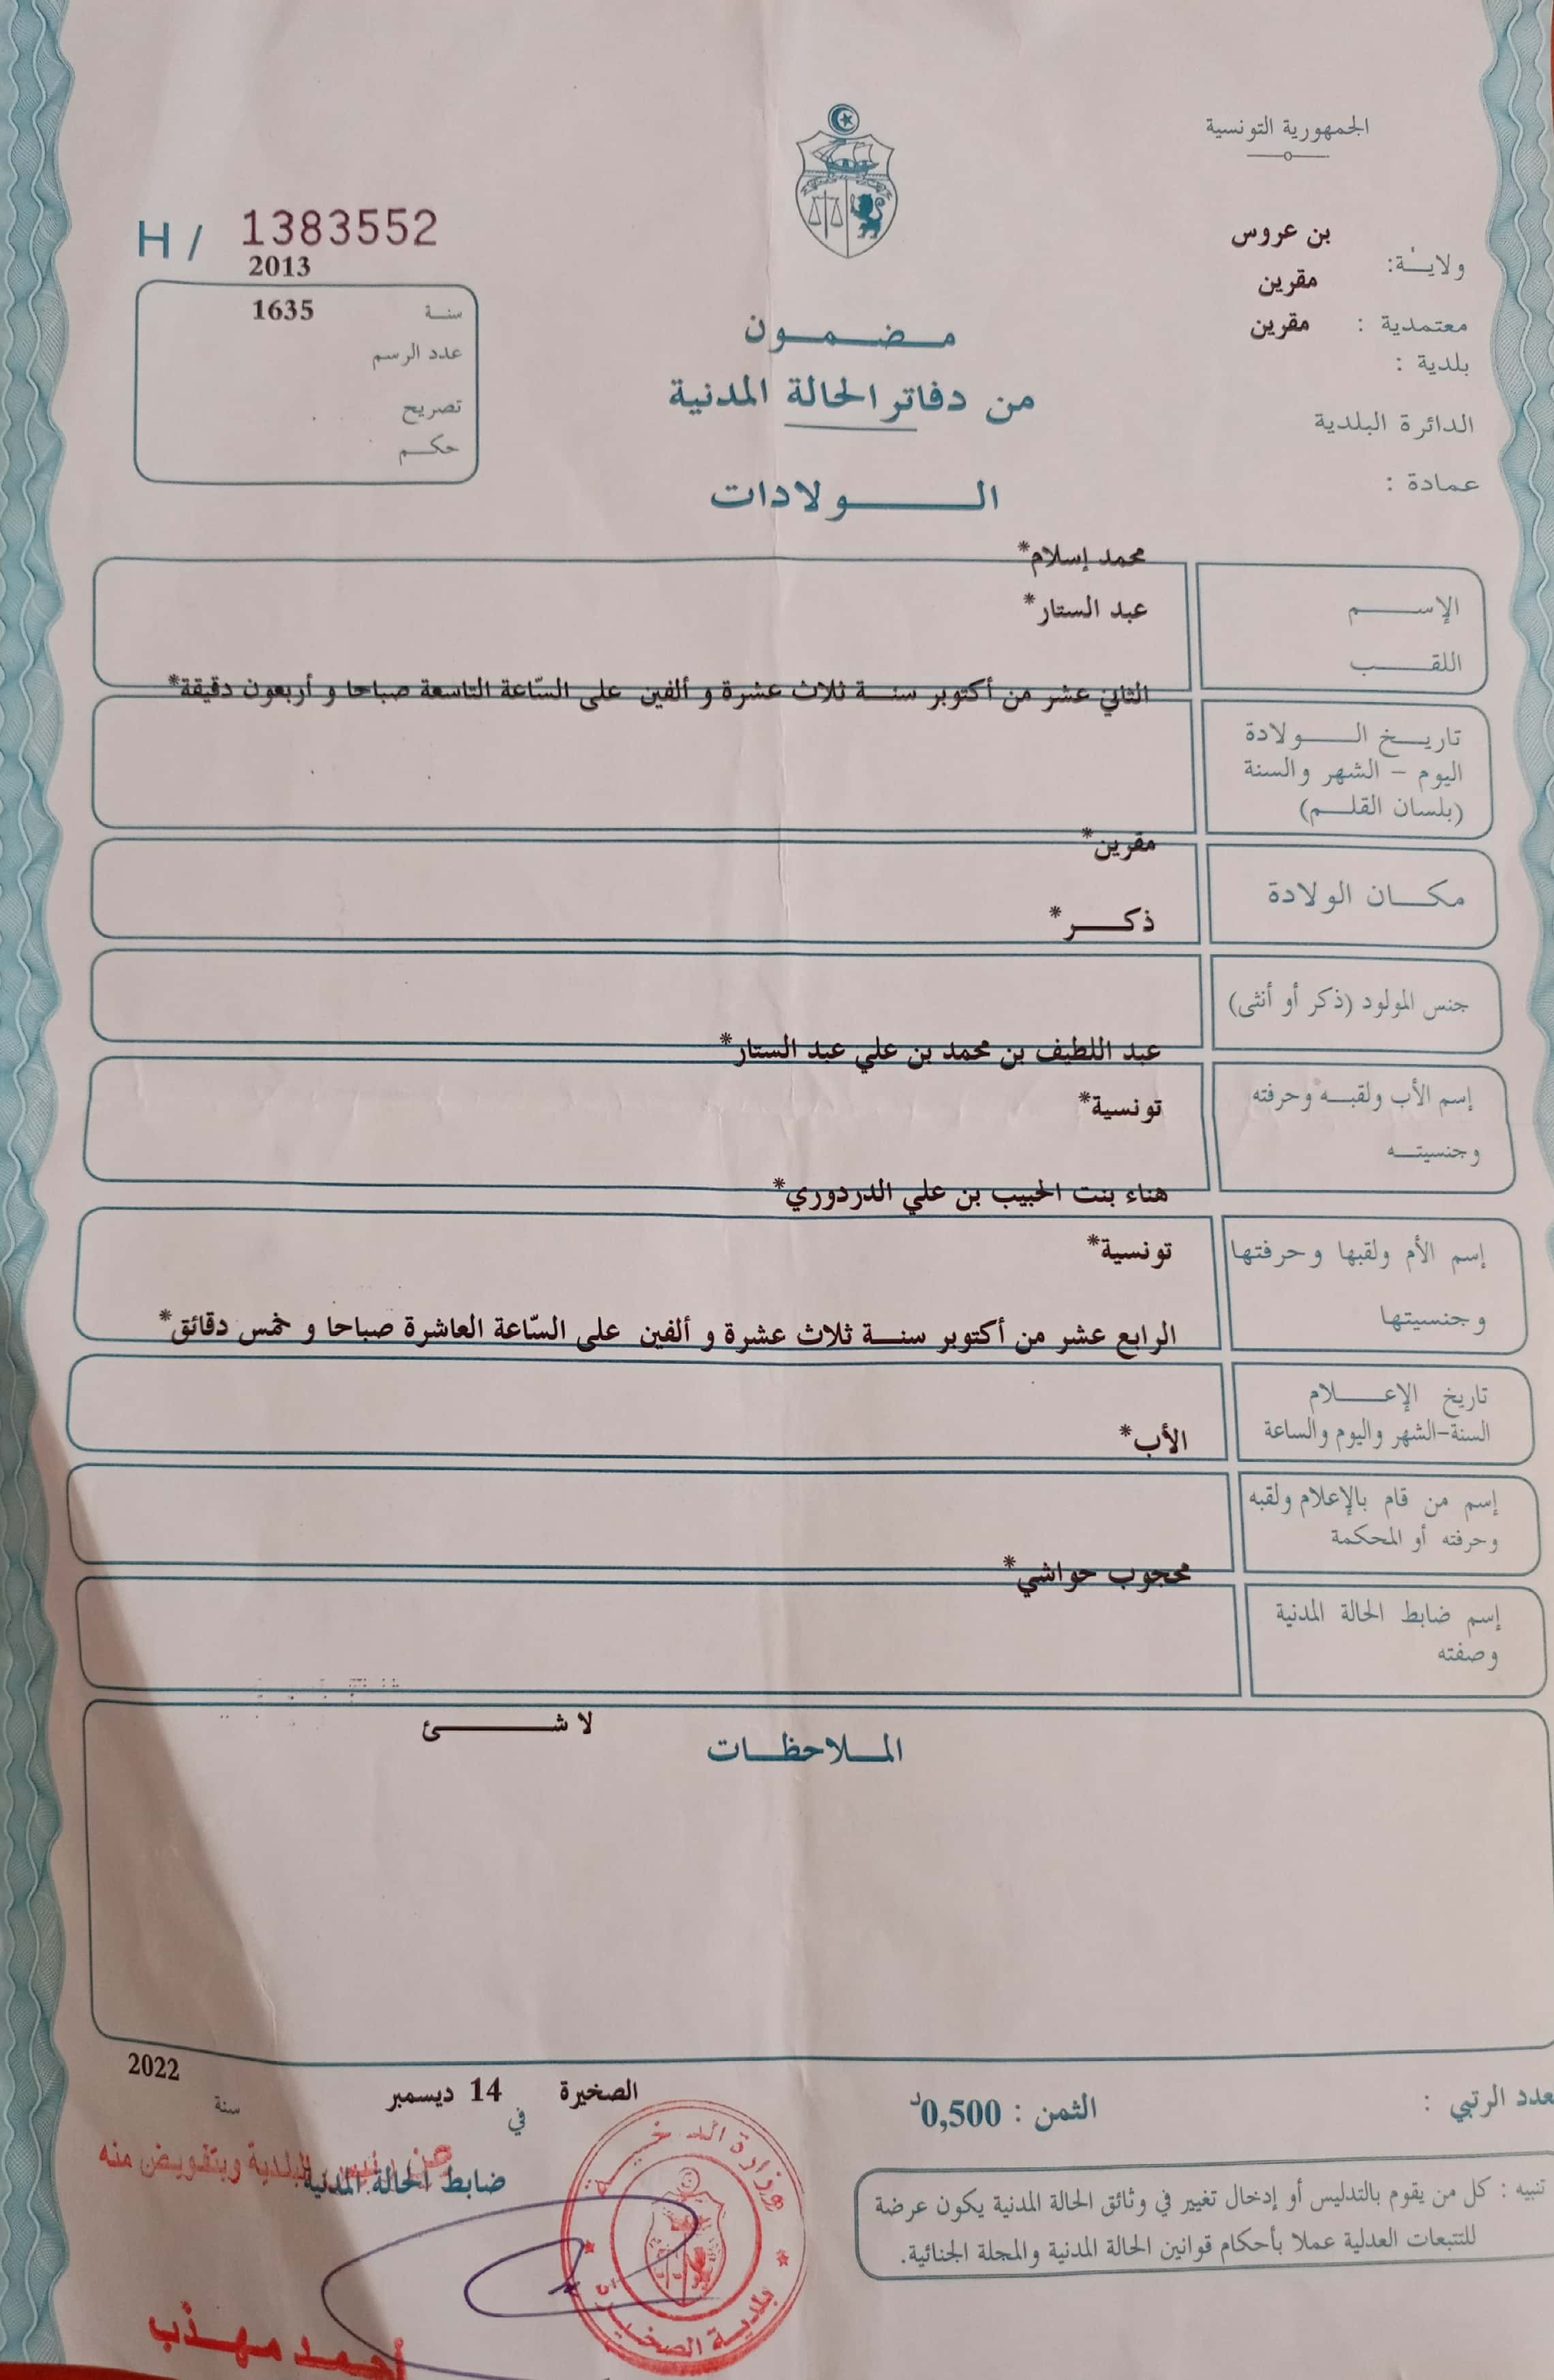 الجمهورية التونسية
بن عروس
ولايـة:
مقرين
معتمدية :
مقرين
بلدية :
الدائرة البلدية
عمادة :
H / 1383552
2013
سنـة
1635
عدد الرسم
تصريح
حكـم
مـضـمـون
من دفاتر الحالة المدنية
الـولادات
محمد إسلام*
الإسـم
عبد الستار*
اللقـب
الثاني عشر من أكتوبر سنـة ثلاث عشرة و ألفين على السّاعة التاسعة صباحا و أربعون دقيقة*
تاريـخ الـولادة
اليوم - الشهر والسنة
(بلسان القلـم)
مقرين*
مكـان الولادة
ذكـر*
جنس المولود (ذكر أو أنثى)
عبد اللطيف بن محمد بن علي عبد الستار*
إسم الأب ولقبـه وحرفته
تونسية*
وجنسيتـه
هناء بنت الحبيب بن علي الدردوري*
إسم الأم ولقبها وحرفتها
تونسية*
وجنسيتها
الرابع عشر من أكتوبر سنـة ثلاث عشرة و ألفين على السّاعة العاشرة صباحا و خمس دقائق*
تاريخ الإعـلام
السنة-الشهر واليوم والساعة
الأب*
إسم من قام بالإعلام ولقبه
وحرفته أو المحكمة
محجوب حواشي*
إسم ضابط الحالة المدنية
وصفته
لا شـئ
المـلاحظـات
عدد الرتبي :
الثمن : 0,500د
الصخيرة في 14 ديسمبر سنة 2022
عن رئيس البلدية وبتفويض منه
ضابط الحالة المدنية
وزارة الداخلية
بلدية الصخيرة
أحمد مهذّب
تنبيه : كل من يقوم بالتدليس أو إدخال تغيير في وثائق الحالة المدنية يكون عرضة
للتتبعات العدلية عملا بأحكام قوانين الحالة المدنية والمجلة الجنائية.